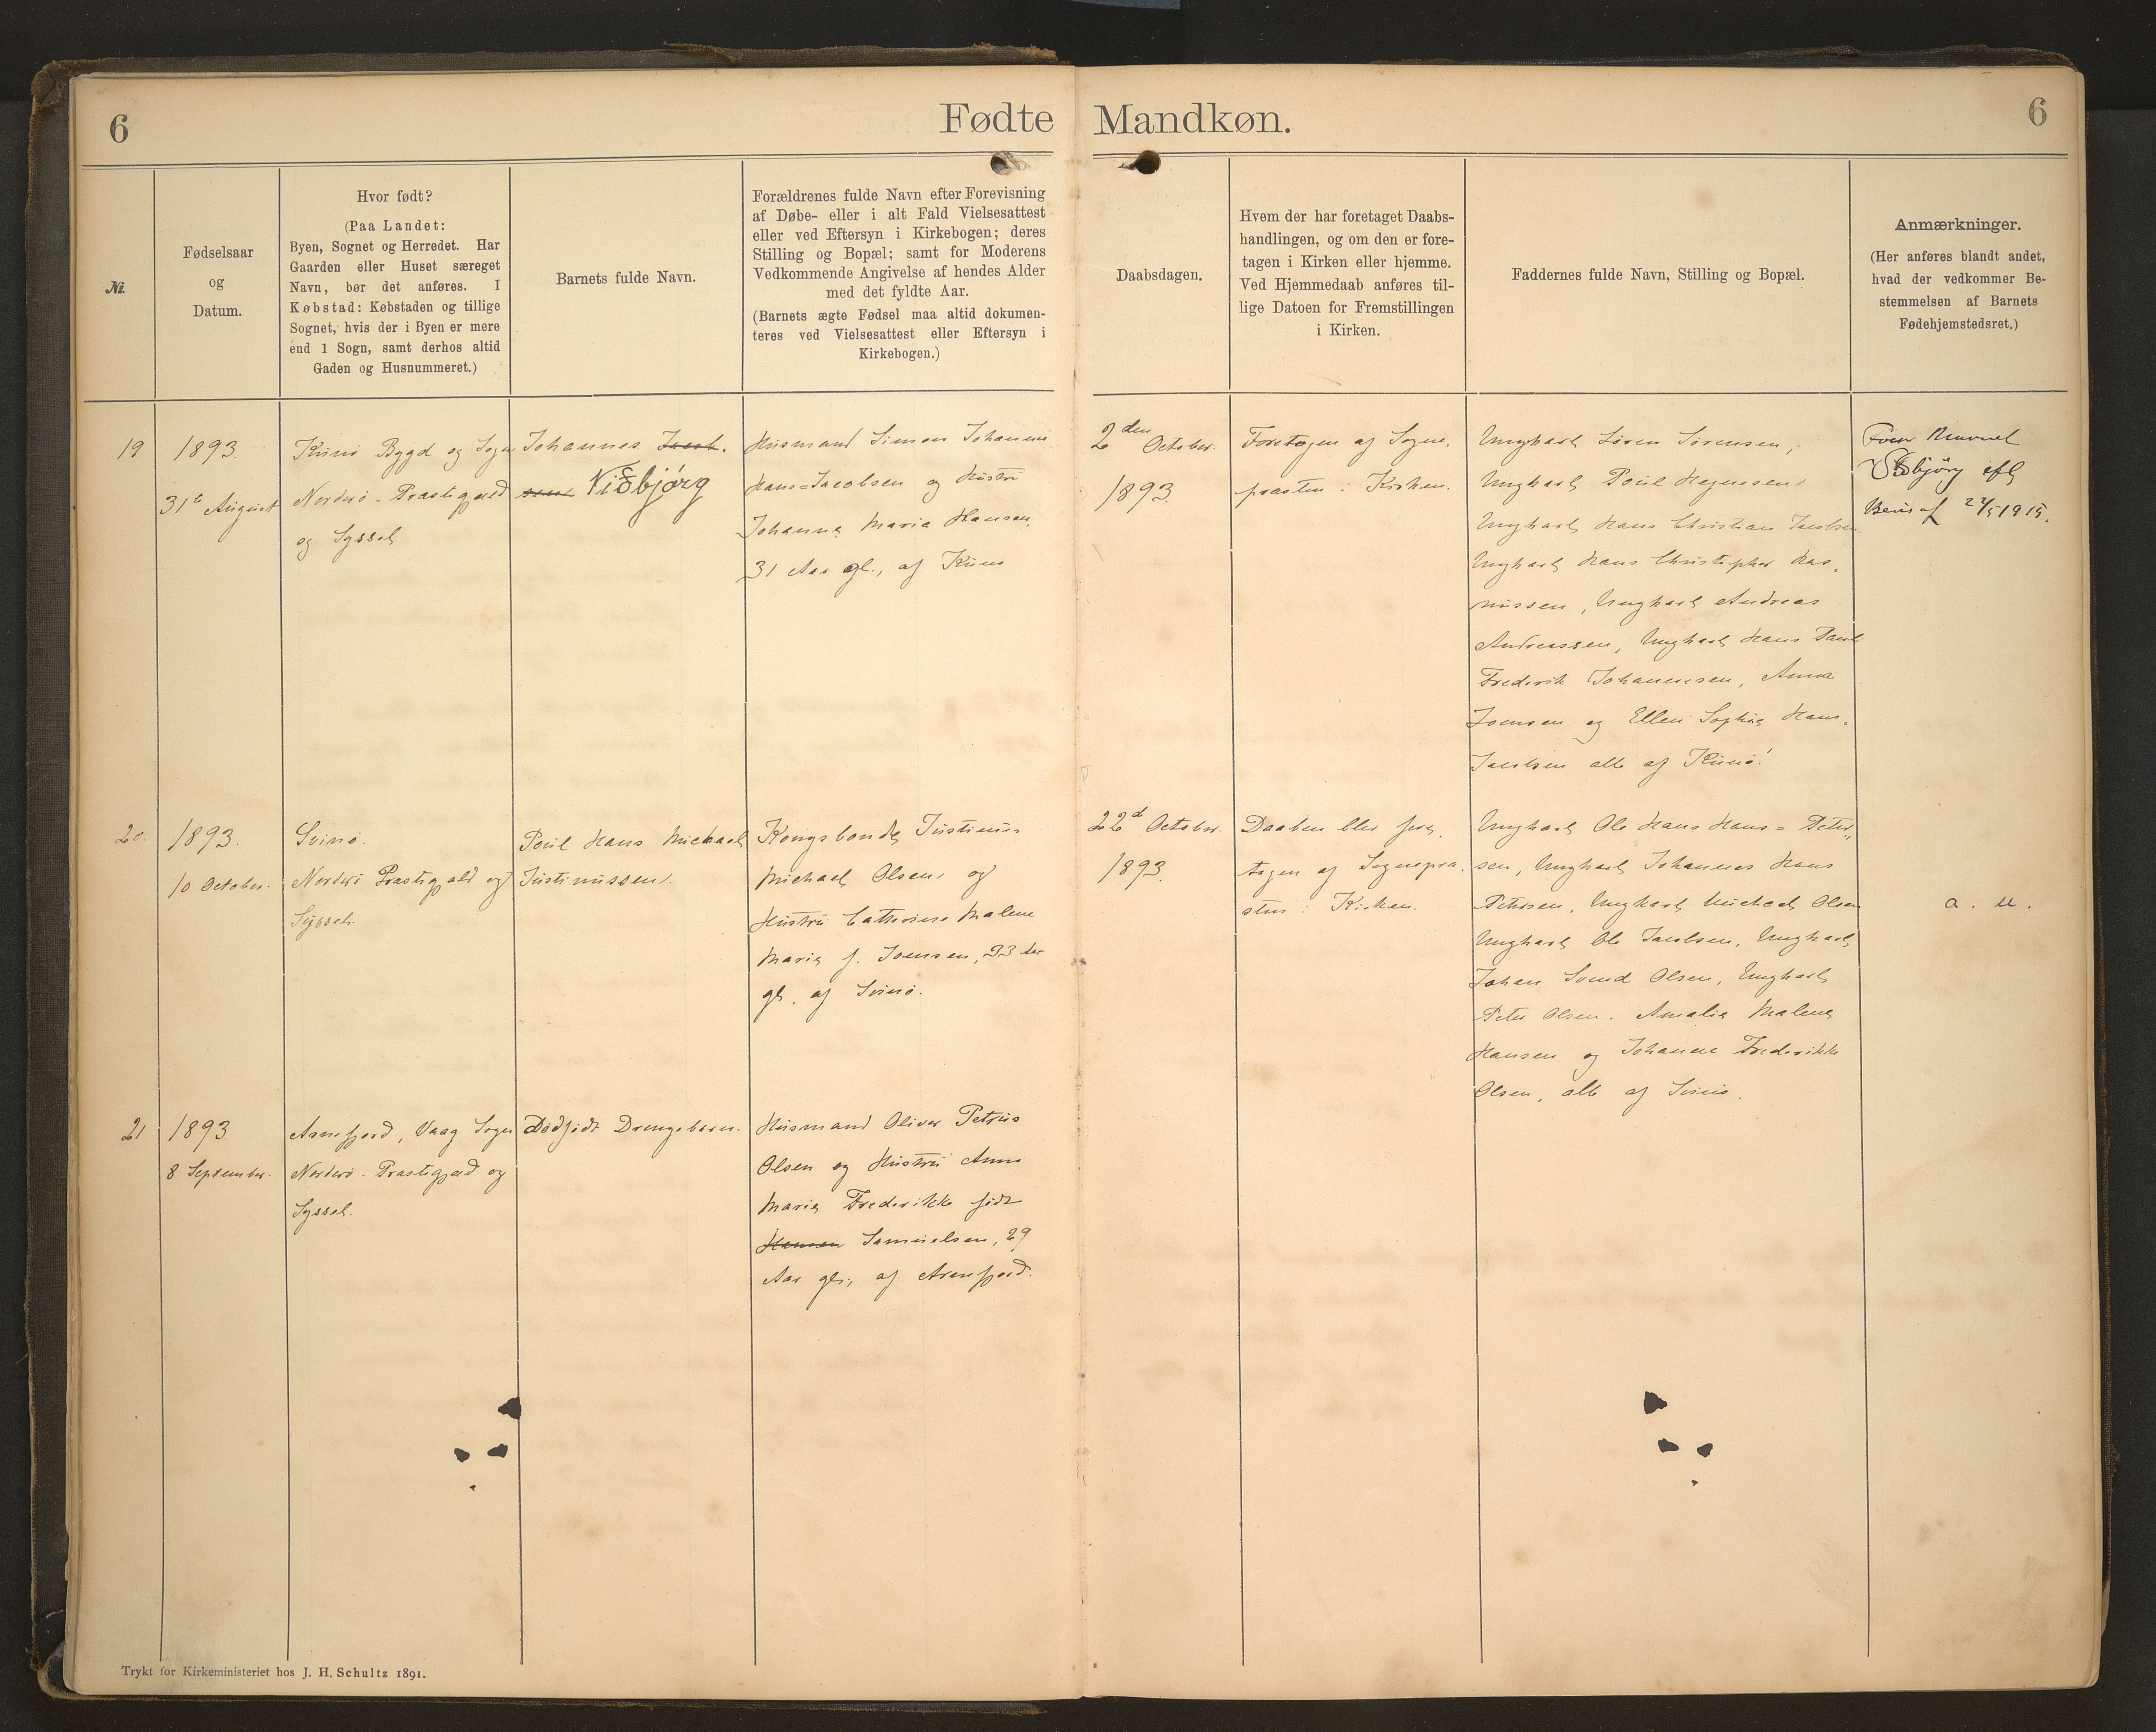 6
Fødte
Mandkøn.
6
Nr.
Fødselsaar
og
Datum.
Hvor født?
(Paa Landet:
Byen, Sognet og Herredet. Har
Gaarden eller Huset særeget
Navn, bør det anføres. I
Købstad: Købstaden og tillige
Sognet, hvis der i Byen er mere
end 1 Sogn, samt derhos altid
Gaden og Husnummeret.)
Barnets fulde Navn.
Forældrenes fulde Navn efter Forevisning
af Døbe- eller i alt Fald Vielsesattest
eller ved Eftersyn i Kirkebogen; deres
Stilling og Bopæl; samt for Moderens
Vedkommende Angivelse af hendes Alder
med det fyldte Aar.
(Barnets ægte Fødsel maa altid dokumen-
teres ved Vielsesattest eller Eftersyn i
Kirkebogen.)
Daabsdagen.
Hvem der har foretaget Daabs-
handlingen, og om den er fore-
tagen i Kirken eller hjemme.
Ved Hjemmedaab anføres til-
lige Datoen for Fremstillingen
i Kirken.
Faddernes fulde Navn, Stilling og Bopæl.
Anmærkninger.
(Her anføres blandt andet,
hvad der vedkommer Be-
stemmelsen af Barnets
Fødehjemstedsret.)
19
1893.
31te August
Kunø Bygd og Sogn
Norderø-Præstegjæld
og Syssel
Johannes Jacob-
sen Viðbjørg
Husmand Simon Johannes
Hans-Jacobsen og Hustru
Johanna Maria Hansen
31 Aar gl., af Kunø
2den October
1893.
Foretagen af Sogne-
præsten i Kirken.
Ungkarl Søren Sørensen,
Ungkarl Poul Hejnesen,
Ungkarl Hans Christian Jacobsen
Ungkarl Hans Christopher Ras-
mussen, Ungkarl Andreas
Andreassen, Ungkarl Hans Jacob
Frederik Johannesen, Anna
Joensen og Ellen Sophie Hans-
Jacobsen alle af Kunø.
Viðbjørg eft
Bevis af 22/5 1915.
20.
1893.
10 October.
Svinø.
Norderø Præstegjæld og
Syssel.
Poul Hans Michael
Justinussen.
Kongsbonde Justinus
Michael Olsen, og
Hustru Cathrine Malene
Maria f. Joensen, 33 Aar
gl. af Svinø.
22d October.
1893.
Daaben blev fore-
tagen af Sognepræ-
sten i Kirken.
Ungkarl Ole Hans Hans-Peter-
sen, Ungkarl Johannes Hans
Petersen, Ungkarl Michael Olsen
Ungkarl Ole Jacobsen, Ungkarl
Johan Svend Olsen, Ungkarl
Peter Olsen. Amalia Malene
Hansen og Johanne Frederikke
Olsen, alle af Svinø.
a. u.
21
1893
8 September.
Arnefjord, Vaag Sogn
Norderø-Præstegjæld og
Syssel.
Dødfødt Drengebarn.
Husmand Oliver Petrus
Olsen og Hustru Anna
Maria Frederikke født
Hansen Samuelsen, 29
Aar gl., af Arnefjord.
Trykt for Kirkeministeriet hos J. H. Schultz 1891.